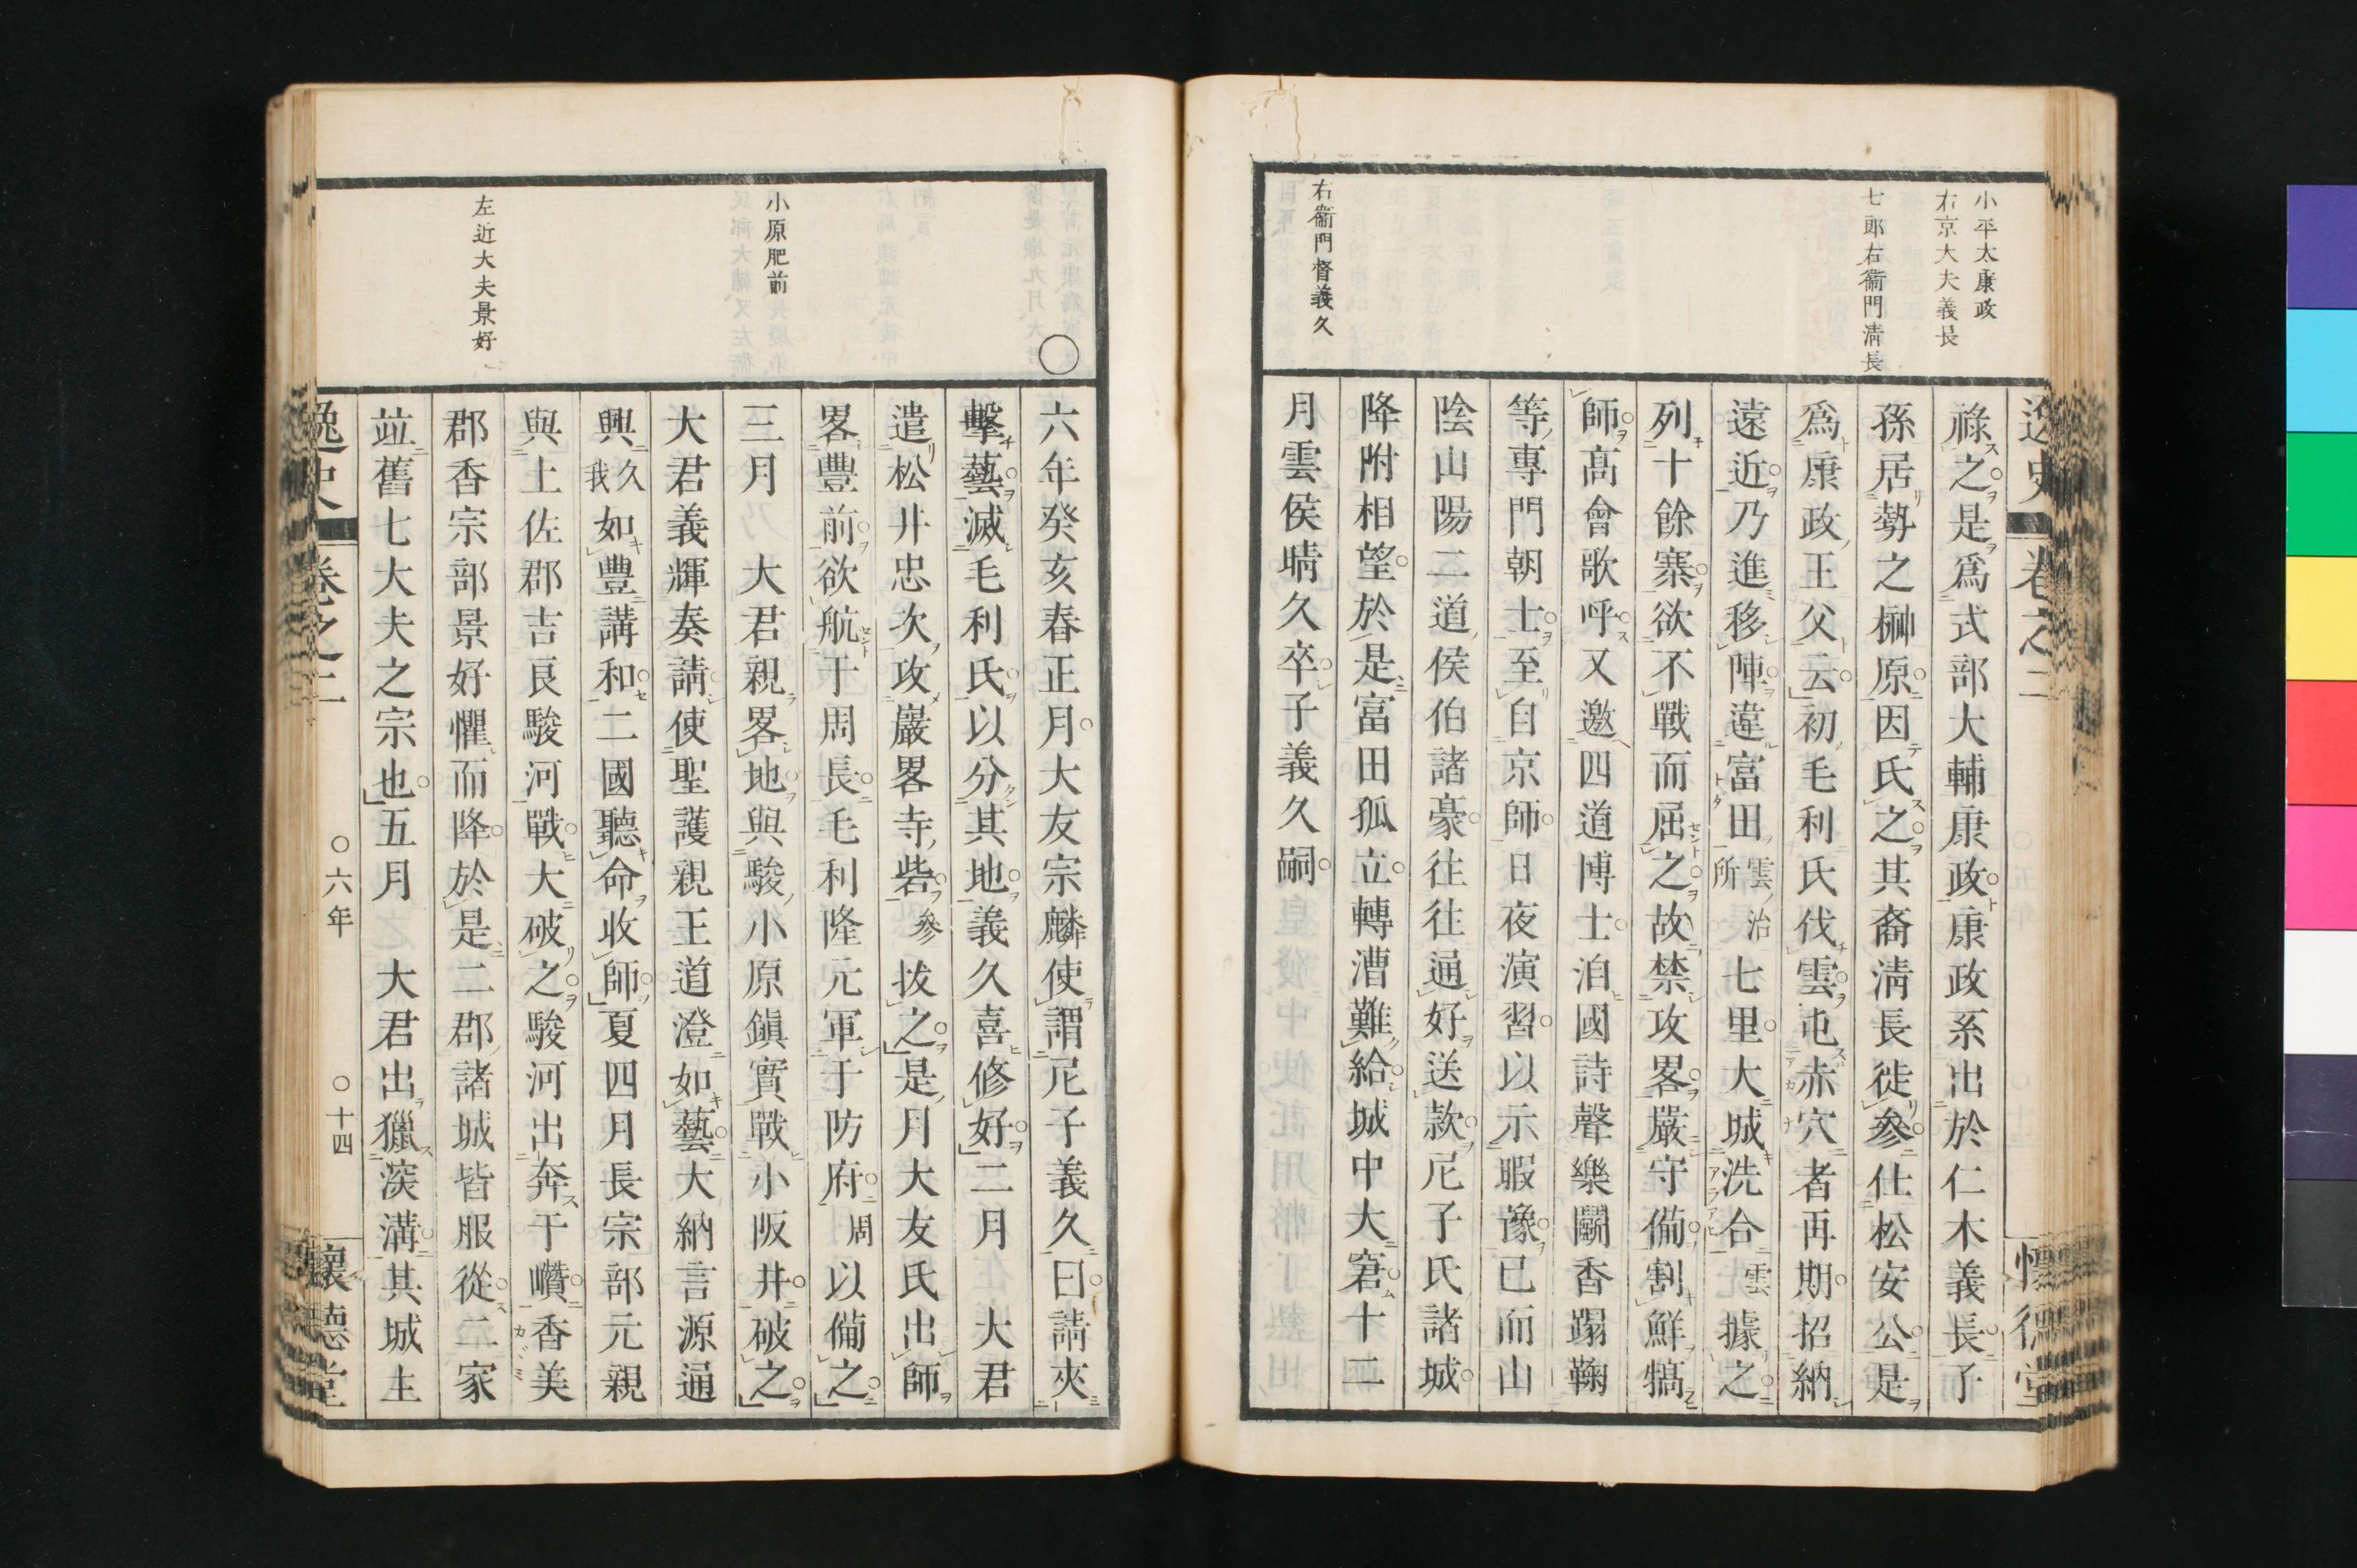 小平太康政
右京大夫義長
七郎右衞門淸長
右衞門督義久
祿之是爲式部大輔康政康政系出於仁木義長子
孫居勢之榊原因氏之其裔淸長徙參仕松安公是
爲康政王父云初毛利氏伐雲屯赤穴者再期招納
遠近乃進移陣違富田雲治所七里大城洗合雲據之
列十餘寨欲不戰而屈之故禁攻畧嚴守備割鮮犒
師高會歌呼又邀四道博士洎國詩聲樂鬭香蹋鞠
等專門朝士至自京師日夜演習以示暇豫已而山
陰山陽二道侯伯諸豪往往通好送款尼子氏諸城
降附相望於是富田孤立轉漕難給城中大窘十二
月雲侯晴久卒子義久嗣
小原肥前
左近大夫景好
○
六年癸亥春正月大友宗麟使謂尼子義久曰請夾
擊藝滅毛利氏以分其地義久喜修好二月 大君
遣松井忠次攻巖畧寺砦參拔之是月大友氏出師
畧豐前欲航于周長毛利隆元軍于防府周以備之
三月 大君親畧地與駿小原鎭實戰小阪井破之
大君義輝奏請使聖護親王道澄如藝大納言源通
興久我如豐講和二國聽命收師夏四月長宗部元親
與土佐郡吉良駿河戰大破之駿河出奔于巑香美
郡香宗部景好懼而降於是二郡諸城皆服從二家
竝舊七大夫之宗也五月 大君出獵深溝其城主
逸史 卷之二 ○六年 ○十四 懷德堂